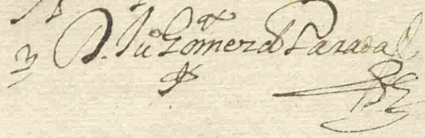 D. Ju° Gomez d Parada